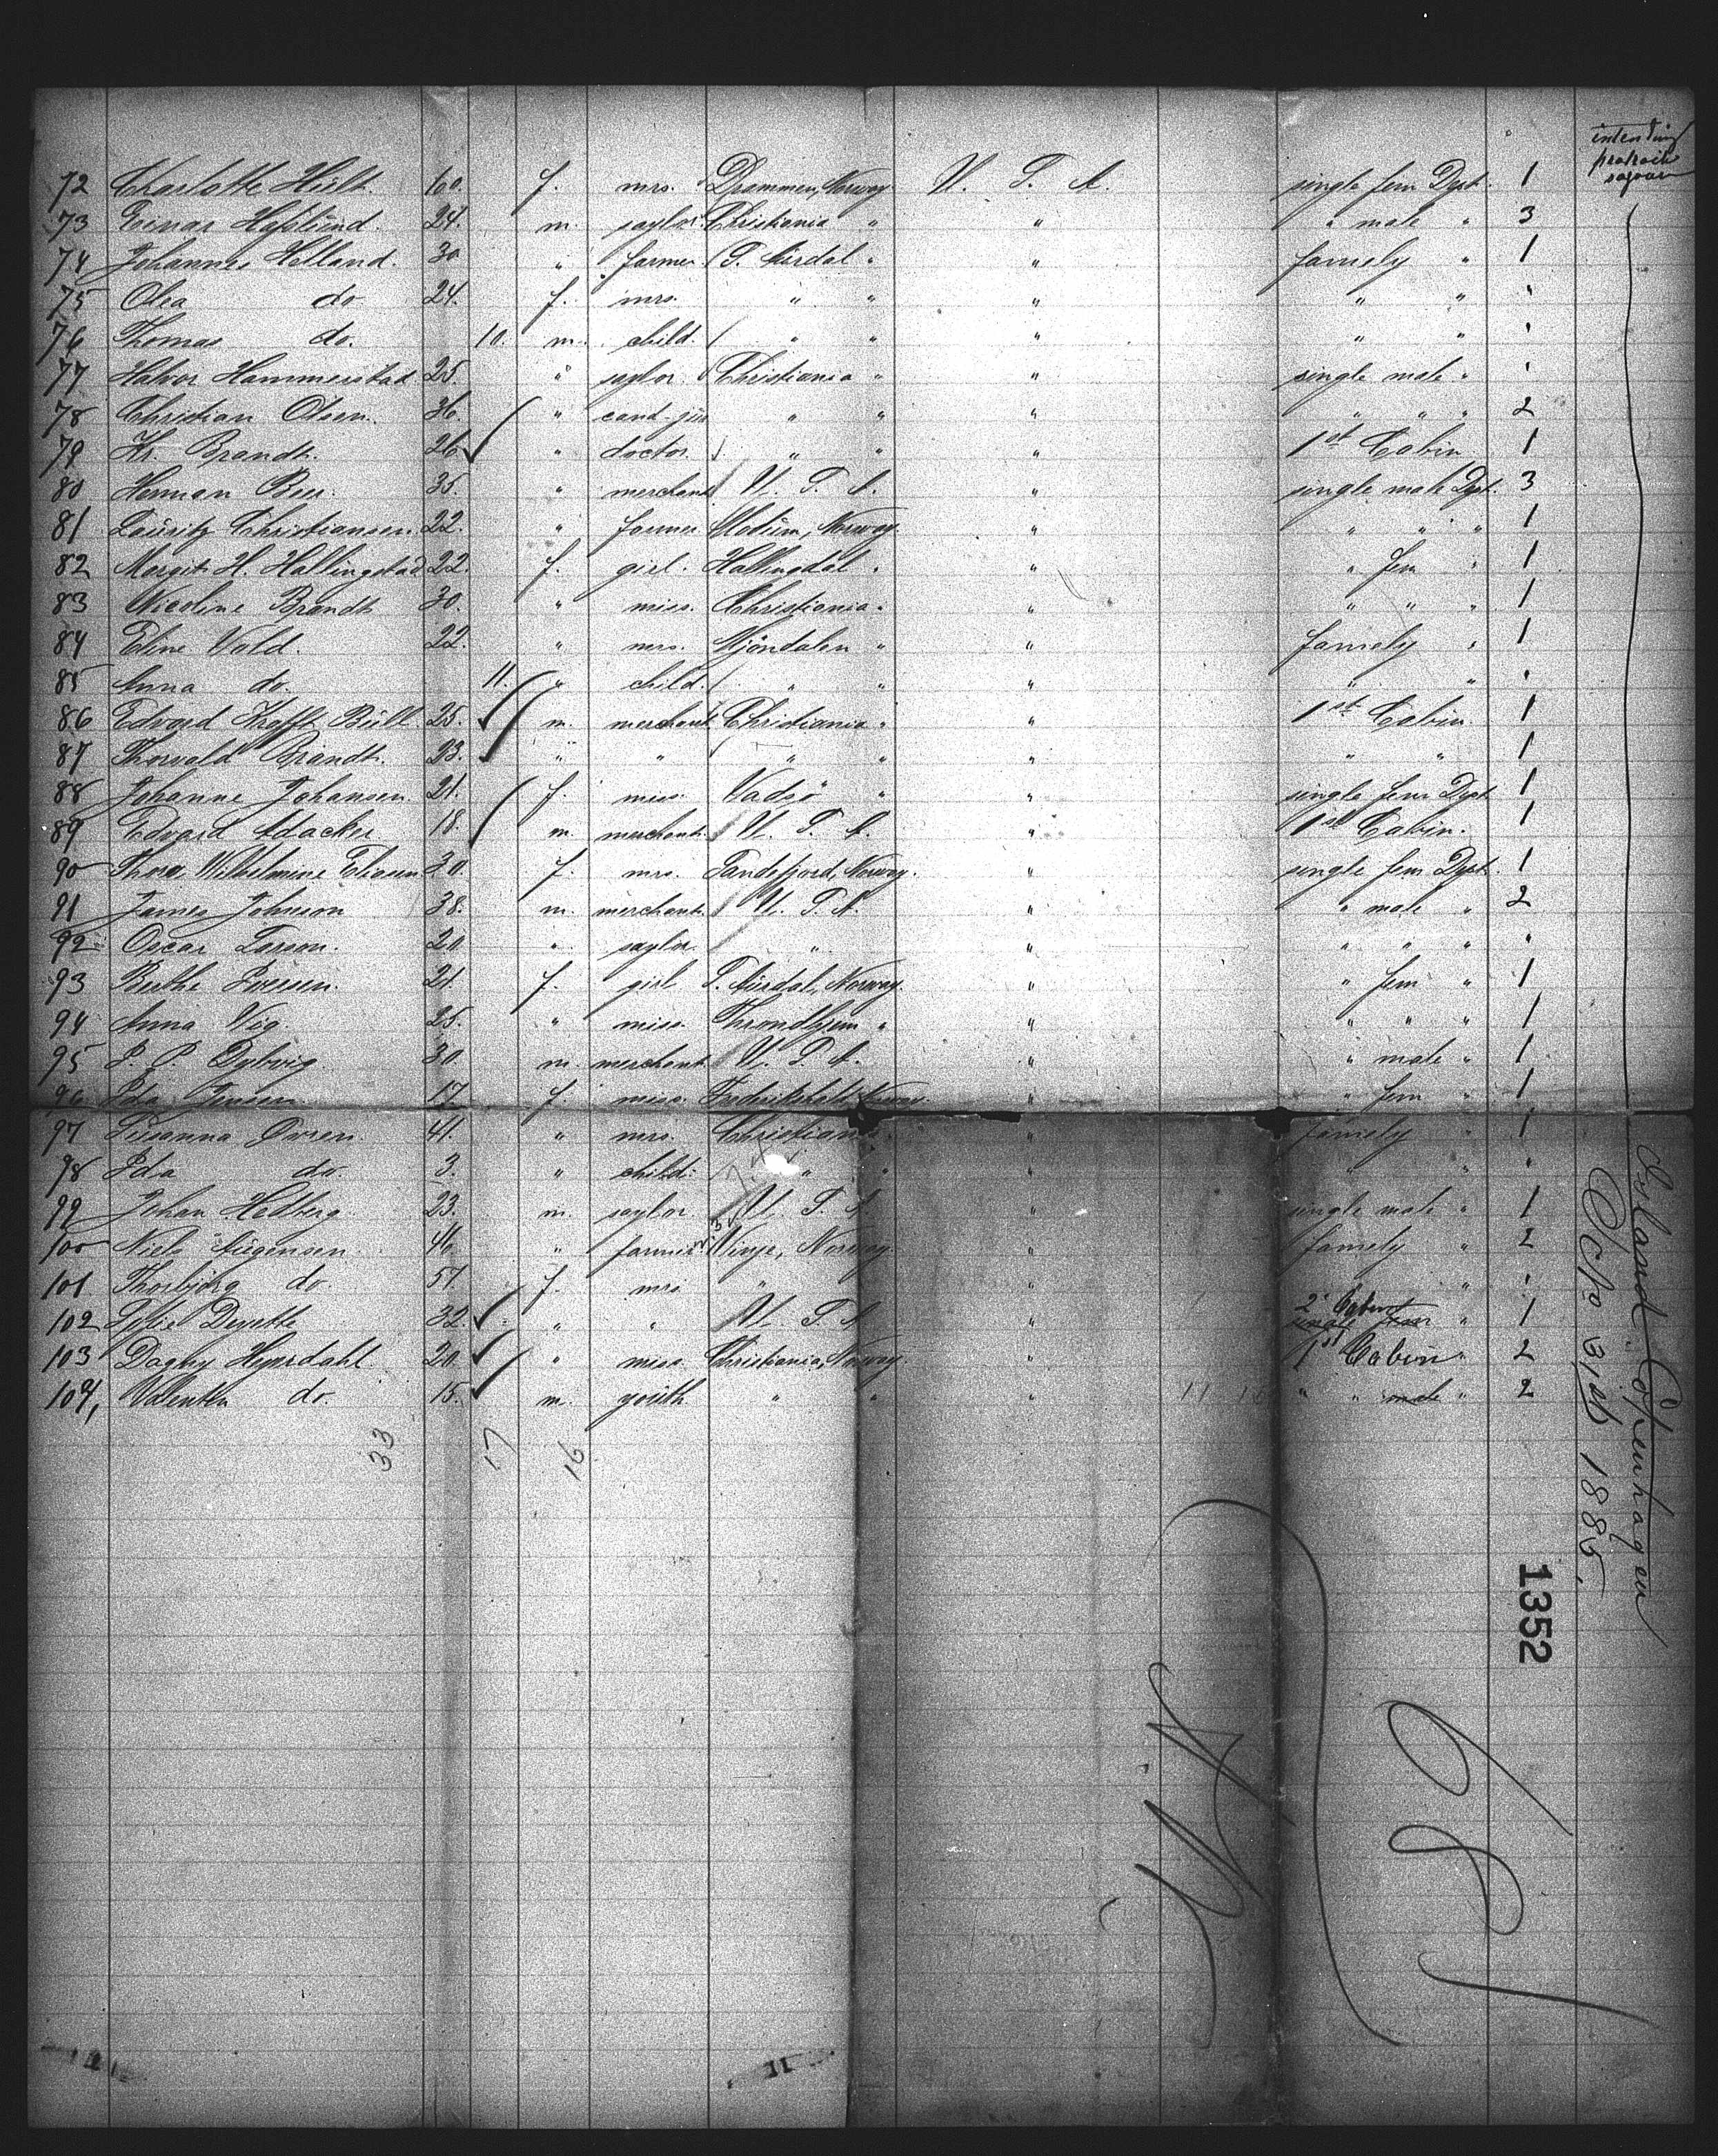 intending
72 Charlotte Hült. 60. f. mrs. Drammen, Norway U. S. A. single fem Dept. 1
73 Einar Hafslund. 24. m. saylor. Christiania " " " male " 3
74 Johannes Helland. 30 " farmer S. Aurdal " " famely " 1
75 Olea do 24. f. mrs. " " " " "
76 Thomas do. 10. m. child. " " " " "
77 Halvor Hammerstad 25. " saylor. Christiania " " single male "
78 Christian Olsen. 36. " cand-jur " " " " " " 2
79 Kr. Brandt. 26 " doctor. " " " 1st Cabin 1
80 Herman Bier. 35. " merchant U. S. A. " single male Dept. 3
81 Lauritz Christiansen. 22. " farmer Modum, Norway. " " " " 1
82 Margit H. Hallingstad 22. f. girl. Hallingdal " " " fem " 1
83 Nicoline Brandt 30. " miss. Christiania " " " " " 1
84 Eline Vold. 22. " mrs. Mjöndalen " " famely " 1
85 Anna do. 11. " child. " " " " "
86 Edvard Krafft Büll 25. m. merchant Christiania " " 1st Cabin. 1
87 Thorvald Brandt. 23. " " " " " " " 1
88 Johanne Johansen. 21. f. miss. Vadsö " " single fem Dept. 1
89 Edvard Adacker 18. m. merchant. U. S. A. " 1st Cabin. 1
90 Thora Wilhelmine Eliasen 30. f. mrs. Sandefjord, Norway. " single fem Dept. 1
91 James Johnson 38. m. merchant. U. S. A. " " male " 2
92 Oscar Larson. 20 " saylor. " " " " "
93 Berthe Iversen. 21. f. girl S. Aurdal, Norway. " " fem " 1
94 Anna Vig. 25. " miss. Throndhjem " " " " " 1
95 P. P. Dybvig. 30. m. merchant. U. S. A. " " male " 1
96 Ida Jensen 17. f. miss. Frederikshald Norway. " " fem " 1
97 Susanna Ovren. 41. " mrs. Christiania. " famely " 1
98 Ida do. 3. " child. " " " " "
99 Johan Hedberg. 23. m. saylor U. S. A " single male " 1
100 Niels Aügensen. 46. " farmer Vinje, Norway. " famely " 2
101 Thorbjörg do. 57. f. mrs " " "
102 Sylie Deyette 32. " " U. S. A " 2d Cabin single fem " 1
103 Dagny Heyerdahl 20. " miss. Christiania, Norway. " 1st Cabin. 2
104, Valentin do. 15. m. youth " " " " " male " 2
33 17 16
Island: Copenhagen
Oct 31st 1885.
1352
11